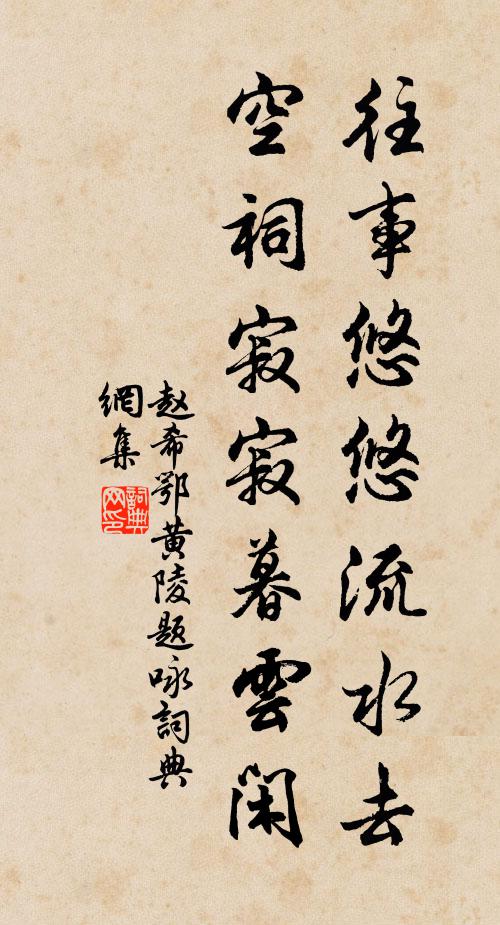 往事悠悠流水去
空祠寂寂暮雲閑
赵希鄂黄陵题咏詞典
網集
詞典
网印